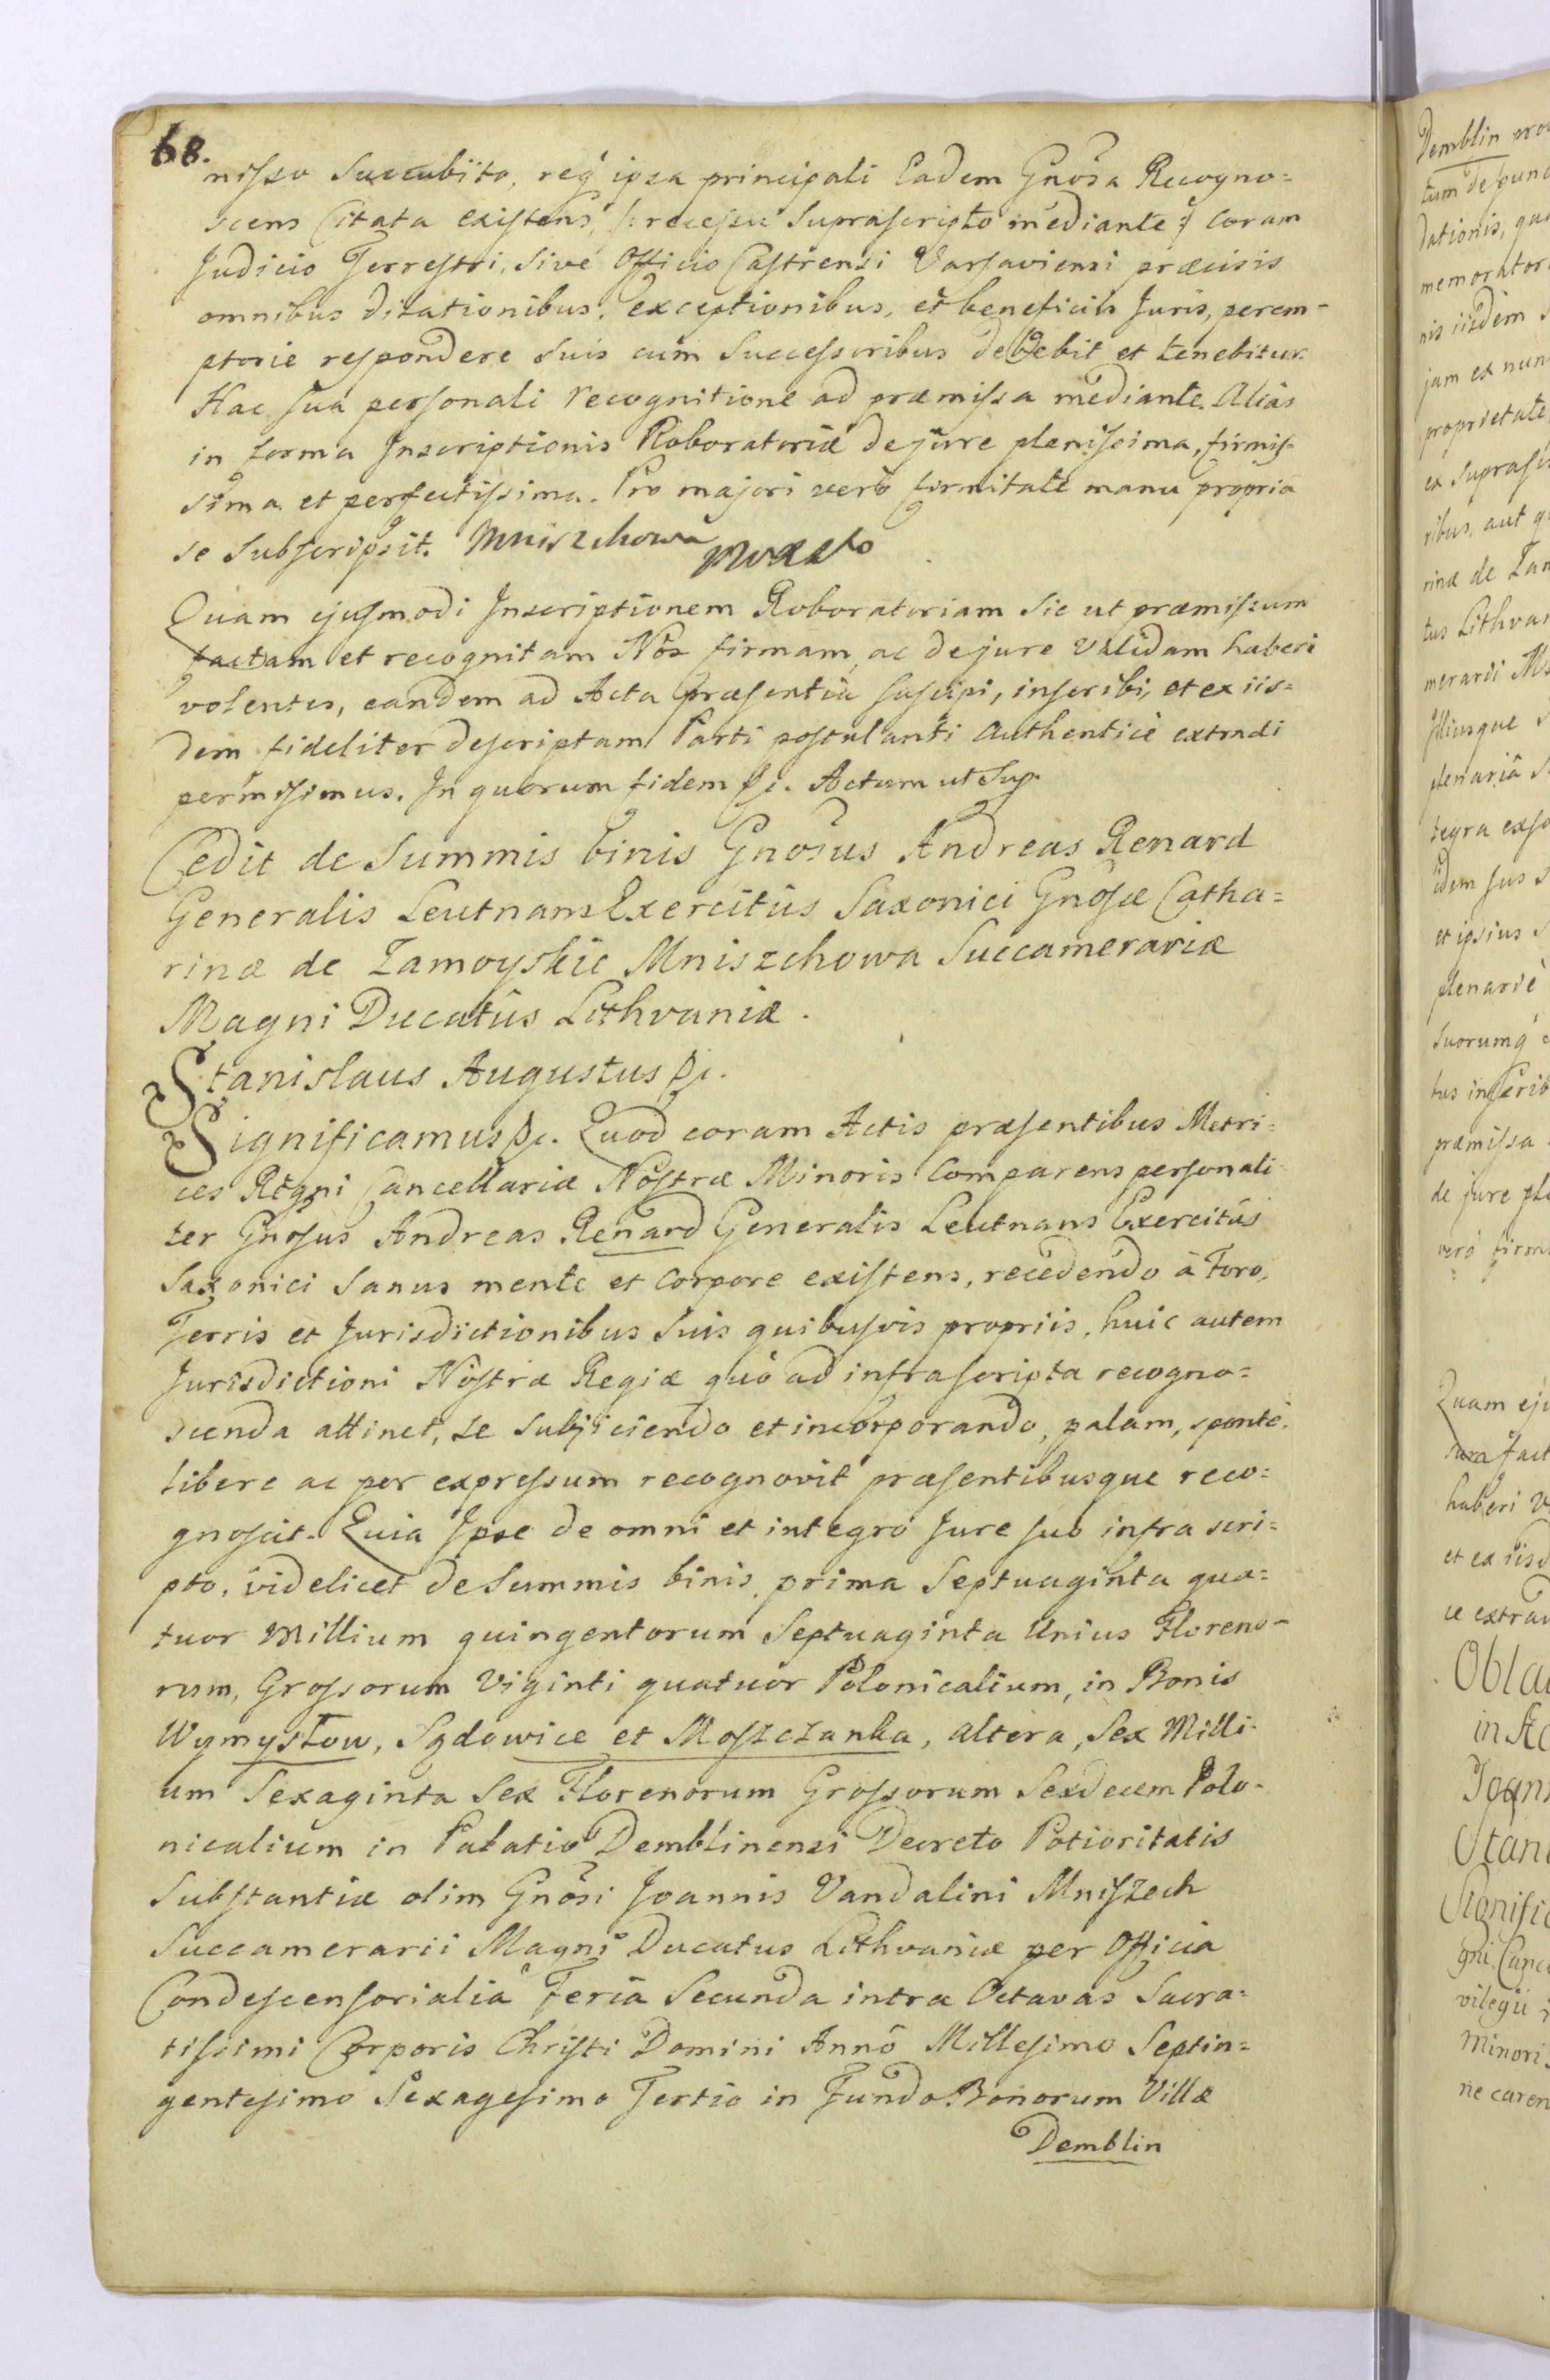 68.
nisso Succubito, req̃ ipsa principali Eadem Gnosa Recogno=
scens Citata existens, /: recessu Suprascripto mediante :/ Coram
Judicio Terrestri, Sive Officio Castrensi Varsaviensi præcisis
omnibus dilationibus, exceptionibus, et beneficiis Juris, perem-
ptorie respondere Suis cum Successoribus debebit et tenebitur.
Hac Sua personali recognitione ad præmissa mediante. Alias
in forma Inscriptionis Roboratoriæ de jure plenissima, firmis-
sima et perfectissima. Pro majori verò firmitate manu propria
se Subscripsit. Mniszchowa
Quam ejusmodi Inscriptionem Roboratoriam Sic ut præmissum
factam et recognitam Nos firmam, ac de jure Validam haberi
volentes, eandem ad Acta præsentia Suscipi, inscribi, et ex iis=
dem fideliter descriptam Parti postulanti Authenticè extradi
permisimus. In quorum fidem &c. Actum ut Sup.
Cedit de Summis binis Gnosus Andreas Renard
Generalis Leutnans Exercitûs Saxonici Gnosæ Catha=
rinæ de Zamoyskie Mniszchowa Succamerariæ
Magni Ducatûs Lithvaniæ.
Stanislaus Augustus &c.
Significamus &c. Quod coram Actis præsentibus Metri=
ces Regni Cancellariæ Nostræ Minoris Comparens personali=
ter Gnosus Andreas Renard Generalis Leutnans Exercitûs
Saxonici Sanus mente et Corpore existens, recedendo à Foro,
Terris et Jurisdictionibus Suis quibusvis propriis, huic autem
Jurisdictioni Nostræ Regiæ quò ad infrascripta recogno=
scenda attinet, se Subjiciendo et incorporando, palam, spontè,
libere ac per expressum recognovit præsentibusque reco=
gnoscit. Quia Ipse de omni et integro Jure suo infra scri=
pto, videlicet de Summis binis, prima Septuaginta qua=
tuor Millium quingentorum Septuaginta Unius Floreno-
rum, Grossorum Viginti quatuor Polonicalium, in Bonis
Wymysłow, Sędowice et Moszczanka, altera, Sex Milli-
um Sexaginta Sex Florenorum Grossorum Sexdecem Polo-
nicalium in Palatio Demblinensi Decreto Potioritatis
Substantiæ olim Gnosi Joannis Vandalini Mniszech
Succamerarii Magni Ducatus Lithvaniæ per Officia
Condescensorialia Feria Secunda intra Octavas Sacra=
tissimi Corporis Christi Domini Annô Millesimo Septin=
gentesimo Sexagesimo Tertio in Fundo Bonorum Villæ
Demblin
Demblin
dationis,
memorator
nis iisdem
jam ex nun
proprietate
ex suprasc
ribus, aut
rinæ de Zam
tus Lithvan
merarii
Illiusque
plenariâ
tegra
idem jus
et ipsius
plenariè
Suorumq̃
tus inscrib
præmissa
de jure ple
verò firm
Quam eju
fact
haberi
et ex iisd
ce extrad
Obla
in Ac
Joann
Stani
Signific
gni Canc
vilegii
Minoris
rie caren